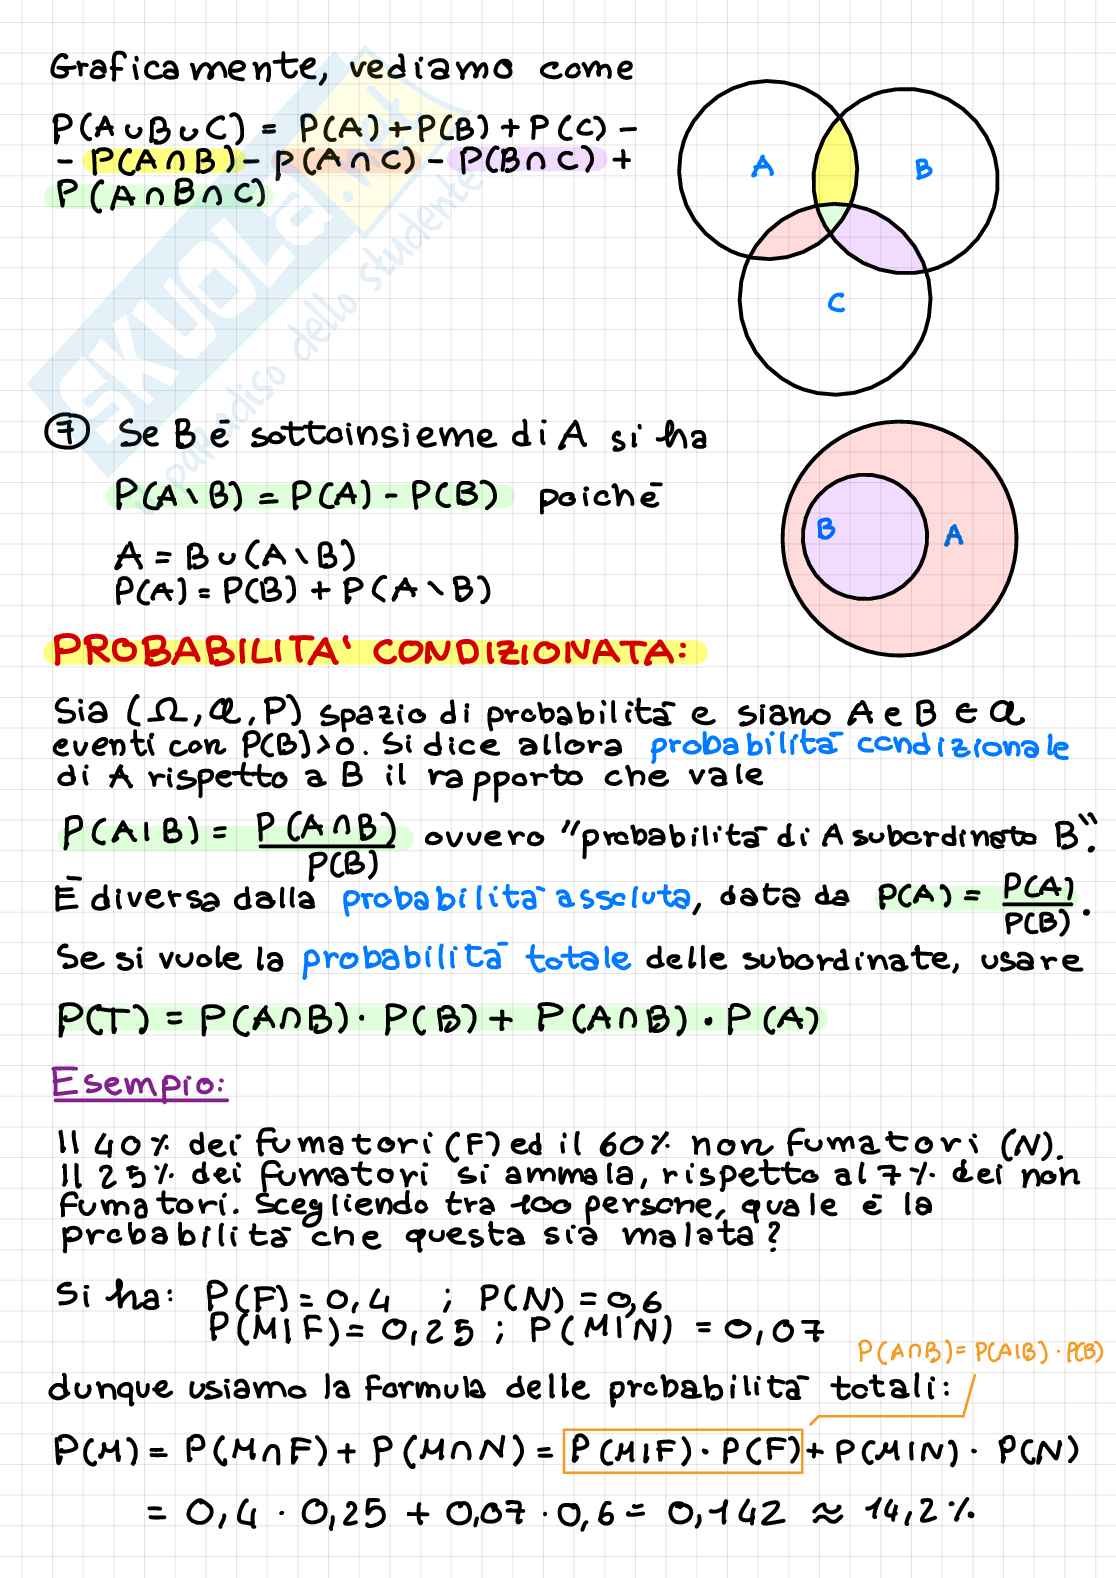 Graficamente, vediamo come
P(A∪B∪C) = P(A)+P(B)+P(C) -
- P(A∩B) - P(A∩C) - P(B∩C) +
P(A∩B∩C)
A
B
C
SKUOLA.net
paradiso dello studente
⑦ Se B ē sottoinsieme di A si ha
P(A∖B) = P(A) - P(B) poichē
A = B∪(A∖B)
P(A) = P(B) + P(A∖B)
B
A
PROBABILITA' CONDIZIONATA:
Sia (Ω, 𝒜, P) spazio di probabilitā e siano A e B ∈ 𝒜
eventi con P(B)>0. Si dice allora probabilitā condizionale
di A rispetto a B il rapporto che vale
P(A|B) = P(A∩B)/P(B) ovvero "probabilitā di A subordinato B".
Ē diversa dalla probabilitā assoluta, data da P(A) = P(A)/P(B).
Se si vuole la probabilitā totale delle subordinate, usare
P(T) = P(A∩B)· P(B) + P(A∩B) · P(A)
Esempio:
Il 40% dei fumatori (F) ed il 60% non fumatori (N).
Il 25% dei fumatori si ammala, rispetto al 7% dei non
fumatori. Scegliendo tra 100 persone, quale ē la
probabilitā che questa sia malata?
Si ha: P(F) = 0,4 ; P(N) = 0,6
P(M|F) = 0,25 ; P(M|N) = 0,07
P(A∩B) = P(A|B) · P(B)
dunque usiamo la formula delle probabilitā totali:
P(M) = P(M∩F) + P(M∩N) = P(M|F) · P(F) + P(M|N) · P(N)
= 0,4 · 0,25 + 0,07 · 0,6 = 0,142 ≈ 14,2%